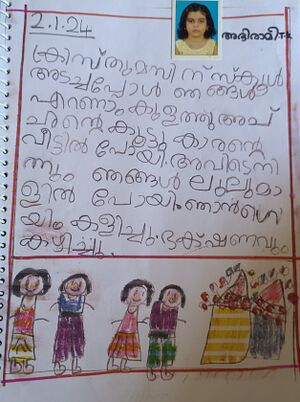 2.1.24
അഭിരാമി T.K
ക്രിസ്തുമസിന് സ്കൂൾ
അടച്ചപ്പോൾ ഞങ്ങൾ
എറണാം കുളത്തു അച്
ഛന്റെ കൂട്ടു കാരന്റെ
വീട്ടിൽ പോയി. അവിടെനി
ന്നും ഞങ്ങൾ ലുലുമാ
ളിൽ പോയി. ഞാൻ ഗെ
യിം കളിച്ചു. ഭക്ഷണവും
കഴിച്ചു.